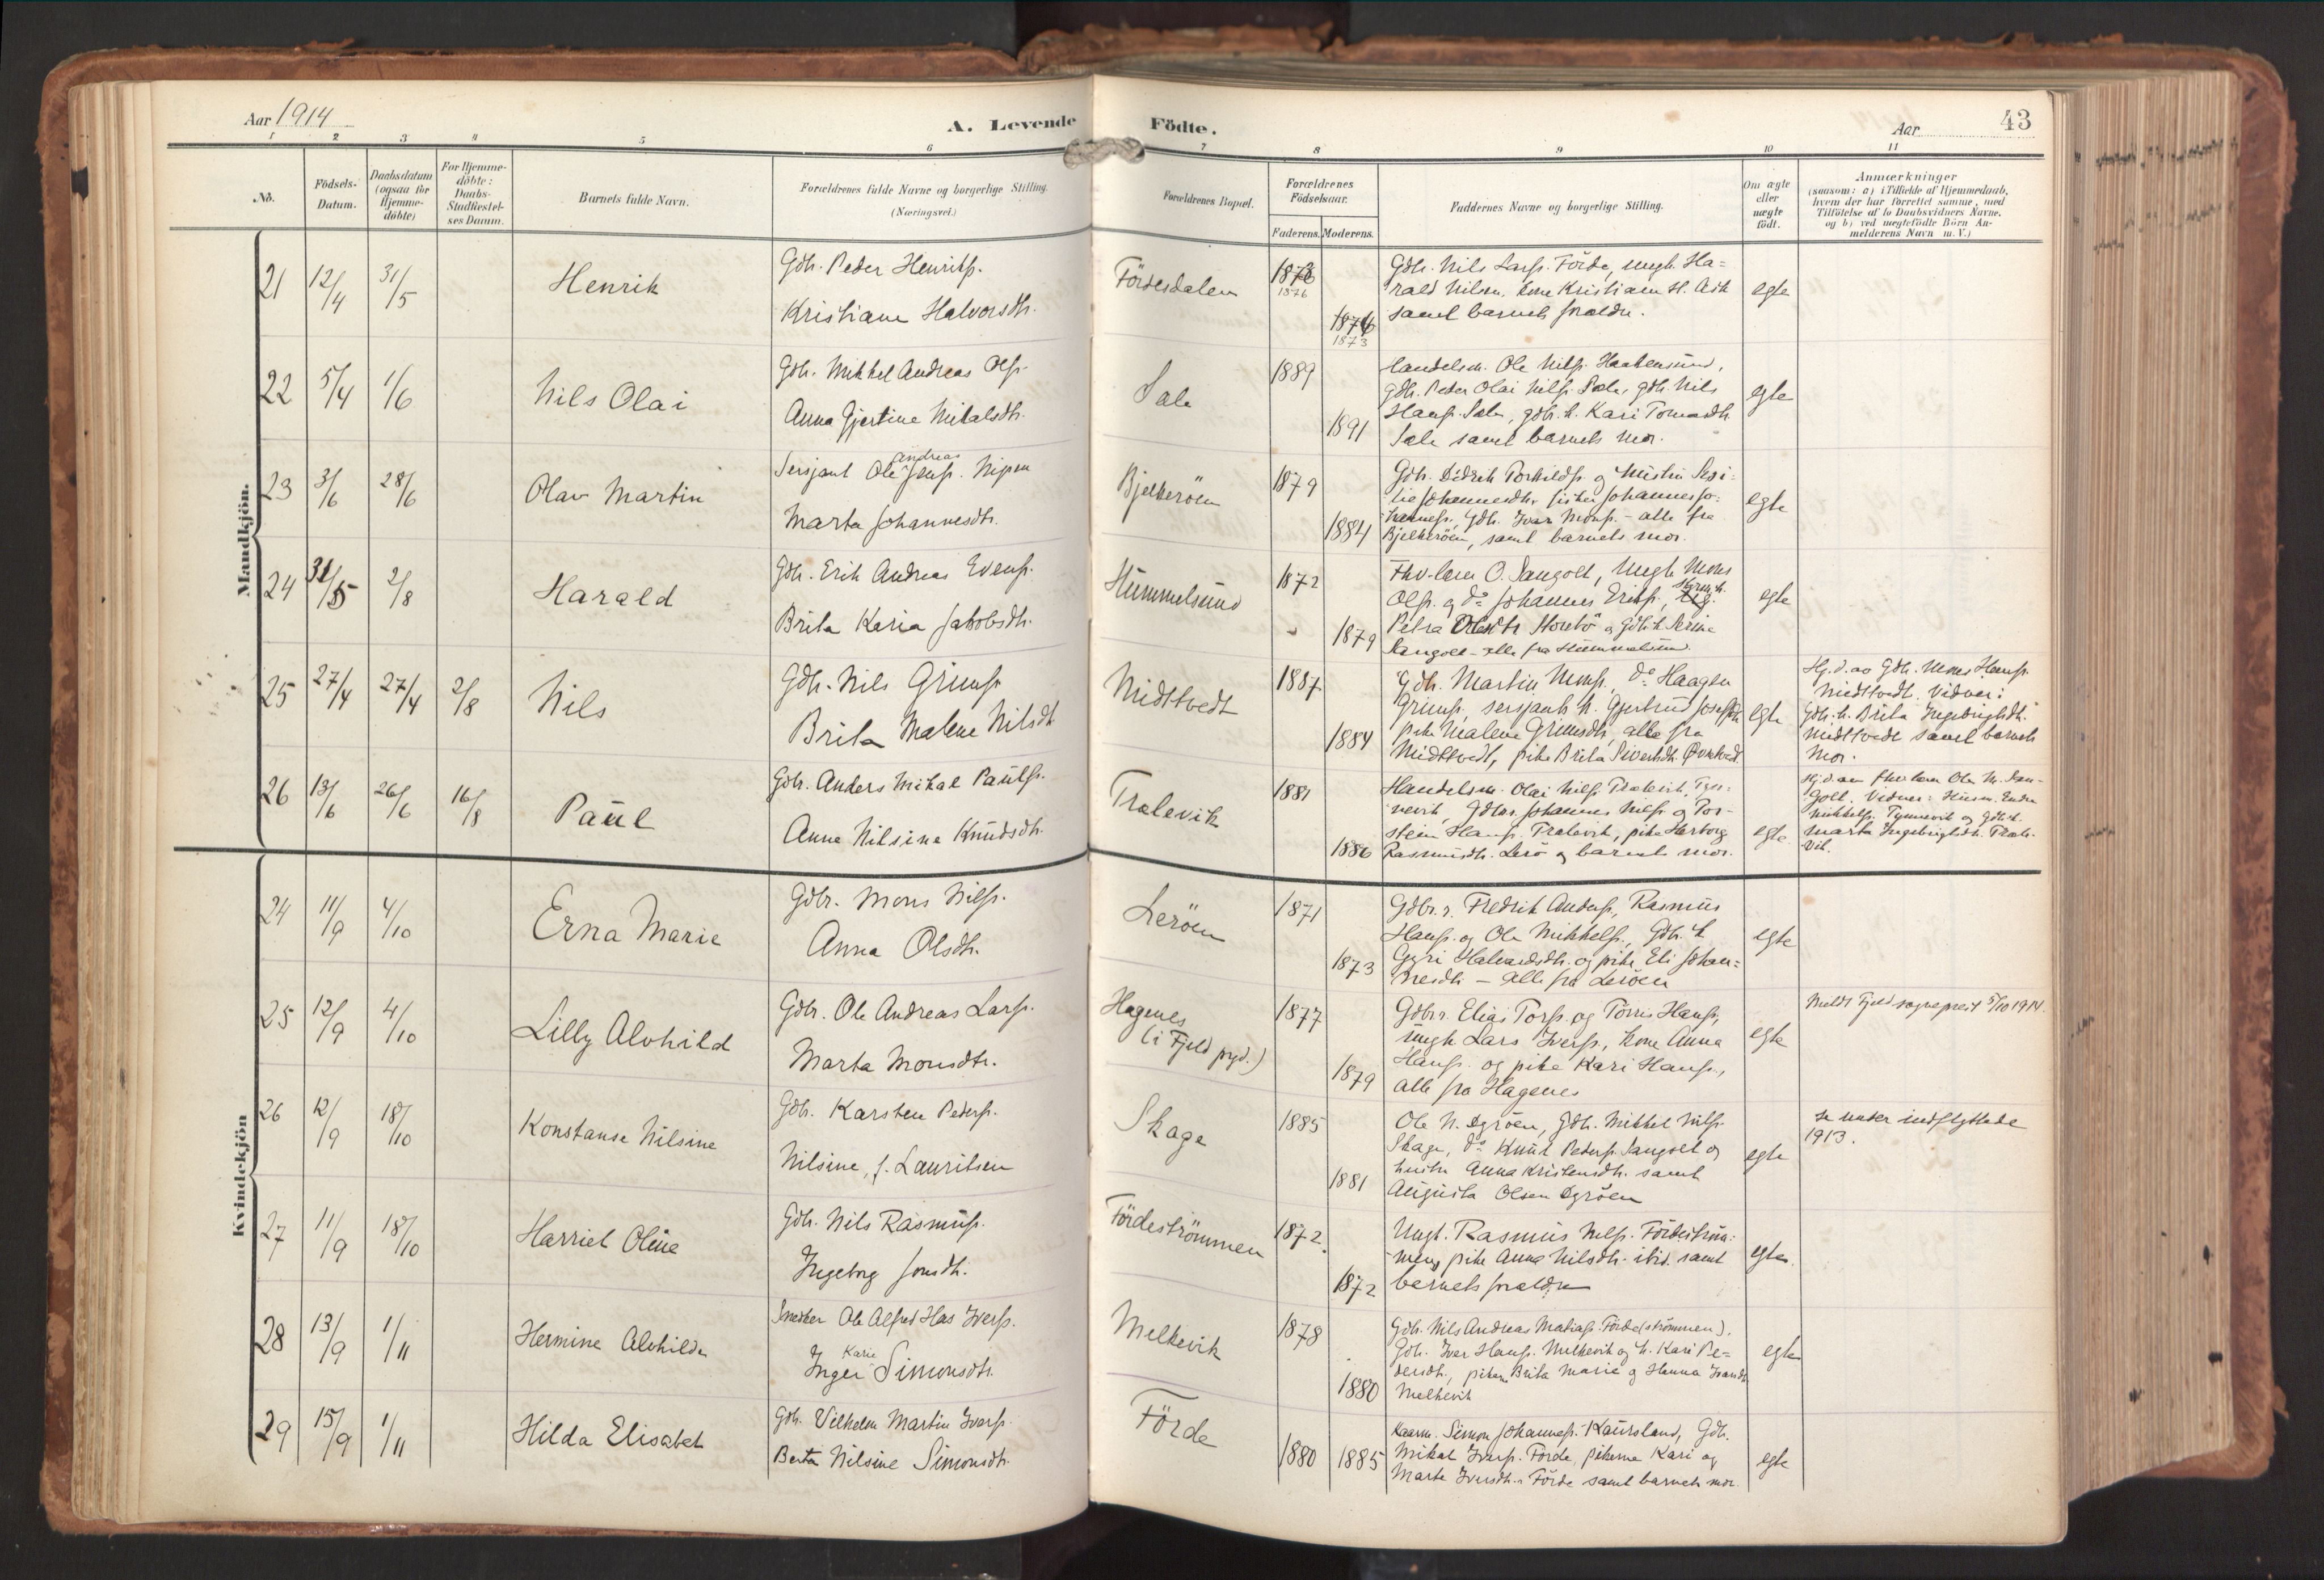 Aar 1914
A. Levende Födte.
Aar
43
1 2 3 4 5 6 7 8 9 10 11
No.
Födsels-
Datum.
Daabsdatum
(ogsaa for
Hjemme-
döbte)
For Hjemme-
döbte:
Daabs-
Stadfæstel-
ses Datum.
Barnets fulde Navn.
Forældrenes fulde Navne og borgerlige Stilling.
(Næringsvei.)
Forældrenes Bopæl.
Forældrenes
Födselsaar.
Faderens. Moderens.
Faddernes Navne og borgerlige Stilling.
Om ægte
eller
uægte
födt.
Anmærkninger
(saasom: a) i Tilfælde af Hjemmedaab,
hvem der har forrettet samme, med
Tilföielse af to Daabsvidners Navne,
og b) ved uægtefödte Börn An-
melderens Navn m. V.)
Mandkjön.
21 12/4 31/5 Henrik
Gdb. Peder Henriks.
Kristiane Halvorsdtr.
Fördesdalen
1876
1873
Gdb. Nils Lars. Förde, ungk. Ha=
rald Nilsen, kone Kristiane H. Ask
samt barnets foreldre.
egte
22 5/4 1/6 Nils Olai
Gdb. Mikkel Andreas Ols.
Anna Gjertine Mikalsdtr.
Sæle
1889
1891
Handelsm. Ole Nils. Haakensund,
gdb. Peder Olai Nils. Sæle, gdb. Nils
Hans. Sæle, gdb. k. Kari Tomasdtr.
Sæle samt barnets mor.
egte
23 3/6 28/6 Olav Martin
Sersjant Ole Andreas Jens. Nipen
Marta Johannesdtr.
Bjelkeröen
1879
1884
Gdb. Didrik Torkilds. og hustru Sesi=
lie Johannesdtr. fisker Johannes Jo=
hannes., Gdb. Ivar Mons. - alle fra
Bjelkeröen, samt barnets mor.
egte
24 31/5 2/8 Harald
Gdb. Erik Andreas Evens.
Brita Karia Jakobsdtr.
Hummelsund
1872
1879
Fhv. lærer O. Sangolt, Ungk. Mons
Ols. og do Johannes Eriks.,
Petra Olsdtr. Storebö og gdb. k. Serine
Sangolt - alle fra Hummelsund.
egte
25 27/4 27/4 2/8 Nils
Gdb. Nils Grims.
Brita Malene Nilsdtr.
Midttvedt
1887
1884
Gdb. Martin Mons., do Haagen
Grims, sersjants k. Gjertrud Josefsdtr.
pike Malene Grimsdtr. alle fra
Midttvedt, pike Brita Sivertsdtr.
egte
Hj. d. av Gdb. Mons Hans.
Midttvedt. Vidner:
Gdb. k. Brita Ingebrigtsdtr.
Midttvedt samt barnets
mor.
26 13/6 26/6 16/8 Paul
Gdb. Anders Mikal Pauls.
Anne Nilsine Knudsdtr.
Tralevik
1881
1886
Handelsm. Olai Nils. Tralevik,
nevik, Gdbr. Johannes Nils. og Tor=
stein Hans. Tralevik, pike Herborg
Rasmusdtr. Lerö og barnets mor.
egte
Hj. d. av fhv. lærer Ole M. San-
golt. Vidner: Husm. Endre
Mikkels. Tynnevik og Gdb. k.
Marta Ingebrigtsdtr. Trale-
vik.
Kvindekjön
24 11/9 4/10 Erna Marie
Gdbr. Mons Nils.
Anna Olsdtr.
Leröen
1871
1873
Gdbr.r. Fredrik Anders., Rasmus
Hans. og Ole Mikkels., Gdb. k.
Gyri Halvardsdtr. og pike Eli Johan=
nesdtr. - alle fra Leröen
egte
25 12/9 4/10 Lilly Alvhild
Gdbr. Ole Andreas Lars.
Marta Monsdtr.
Hagenes
(i Fjeld prgd.)
1877
1879
Gdbr.r. Elias Tors. og Törris Hans.,
ungk. Lars Ivers., kone Anna
Hans. og pike Kari Hans.,
alle fra Hagenes
egte
Meldt Fjeld sogneprest 5/10 1914.
26 12/9 18/10 Konstanse Nilsine
Gdb. Karsten Peders.
Nilsine, f. Lauritsen
Skage
1885
1881
Ole N. Ögröen, Gdb. Mikkel Nils.
Skage, do Knut Peders. Sangolt og
hustru Anna Kristensdtr. samt
Augusta Olsen Ögröen
egte
se under indflyttede
1913.
27 11/9 18/10 Harriet Oline
Gdb. Nils Rasmus.
Ingeborg Jonsdtr.
Fördeströmmen
1872.
1872
Ungk. Rasmus Nils. Fördeström=
men, pike Anna Nilsdtr. ibid. samt
barnets foreldre
egte.
28 13/9 1/11 Hermine Alvhilde
Snedker Ole Alfred Has Ivers.
Inger Karie Simonsdtr.
Melkevik
1878
1880
Gdb. Nils Andreas Matias. Förde(strömmen).
Gdb. Iver Hans. Melkevik og k. Kari Pe=
dersdtr., pikene Brita Marie og Hanna Iversdtr.
Melkevik
egte
29 15/9 1/11 Hilda Elisabet
Gdb. Vilhelm Martin Ivers.
Berta Nilsine Simonsdtr.
Förde
1880 1885
Kaarm. Simon Johannes. Kausland, Gdb.
Mikal Ivers. Förde, pikerne Kari og
Marta Iversdtr. Förde samt barnets mor.
egte